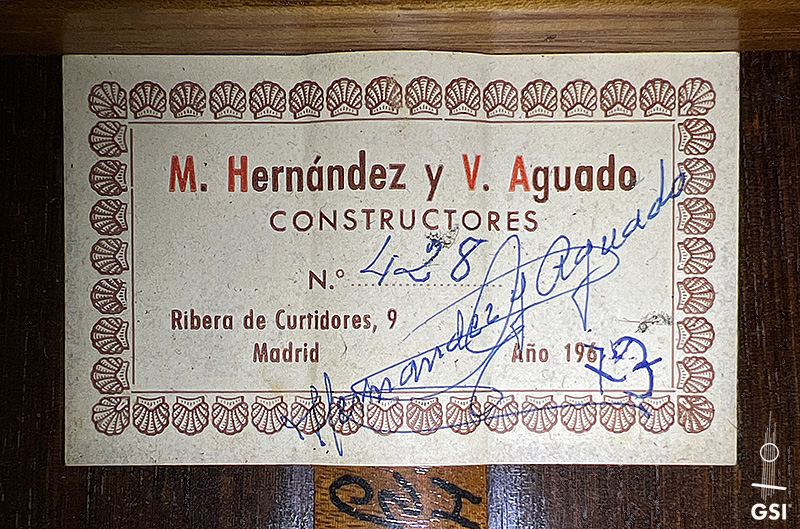 M. Hernández y V. Aguado
CONSTRUCTORES
N.º 428
Ribera de Curtidores, 9
Madrid
Año 196
Hernandez y Aguado
GSI